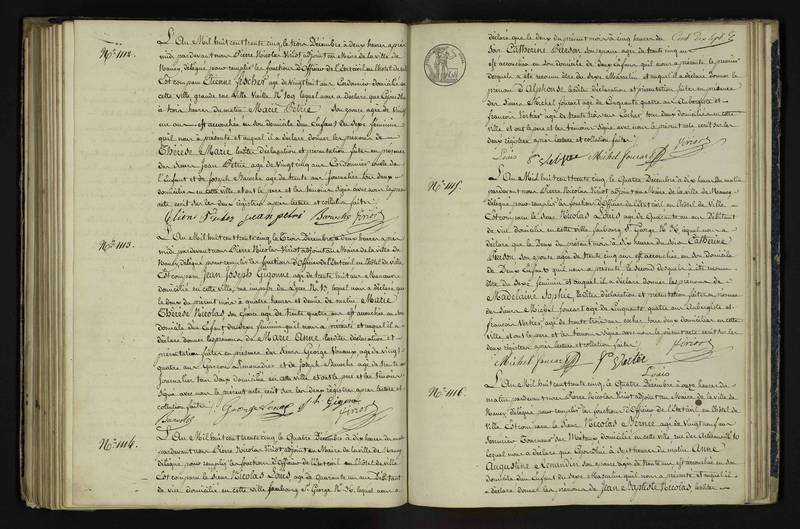 No. 1112.
L'An Mil huit cent trente cinq, le trois Décembre à deux heures après
midi pardevant nous Pierre Nicolas Viriot adjoint au Maire de la ville de
Nancy, délégué pour remplir les fonctions d'Officier de l'état civil en l'hôtel de ville
Est comparu Etienne Fischer âgé de vingt huit ans Cordonnier domicilié en
cette ville, grande rue Ville Vieille No. 109 lequel nous a déclaré que
à trois heures du matin Marie Pétrie son épouse âgée de vingt
un ans est accouchée en son domicile d'un Enfant du sexe féminin
qu'il nous a présenté et auquel il a déclaré donner les prénoms de
Thérèse Marie lesdites déclaration et présentation faites en présence
des Sieurs Jean Pétrie âgé de vingt cinq ans Cordonnier oncle de
l'Enfant et de Joseph Baroche âgé de trente ans Journalier tous deux
domiciliés en cette ville et ont le père et les témoins signé avec nous le présent
acte écrit sur les deux registres après lecture et collation faites
jean petri Baroche Viriot
No. 1113.
L'An Mil huit cent trente cinq, le Trois Décembre à deux heures après
midi pardevant nous Pierre Nicolas Viriot adjoint au Maire de la ville de
Nancy, délégué pour remplir les fonctions d'Officier de l'état civil en l'hôtel de ville
Est comparu Jean Joseph Gigonne âgé de trente huit ans
domicilié en cette ville, rue No. 15, lequel nous a déclaré que
le deux du présent mois à quatre heures et demie du matin Marie
Thérèse Nicolas son épouse âgée de trente quatre ans est accouchée en son
domicile d'un Enfant du sexe féminin qu'il nous a présenté et auquel il a
déclaré donner les prénoms de Marie Anne lesdites déclaration et
présentation faites en présence des Sieurs George âgé de vingt
quatre ans Garçon et de Joseph Baroche âgé de trente ans
Journalier tous deux domiciliés en cette ville et ont le père et les témoins
signé avec nous le présent acte écrit sur les deux registres après lecture et
collation faites
Baroche George Viriot
No. 1114.
L'An Mil huit cent trente cinq le Quatre Décembre à dix heures du matin
pardevant nous Pierre Nicolas Viriot adjoint au Maire de la ville de Nancy
délégué pour remplir les fonctions d'Officier de l'état civil en l'hôtel de ville
Est comparu le sieur Nicolas Louis âgé de Quarante un ans Débitant
de vin domicilié en cette ville faubourg St. George No. 36, lequel nous a
déclaré que le deux du présent mois à cinq heures du
soir Catherine Pierson son épouse âgée de trente cinq ans
est accouchée en son domicile de deux Enfans qu'il nous a présenté le premier
desquels a été reconnu être du sexe Masculin et auquel il a déclaré donner le
prénom de Alphonse lesdites déclaration et présentation faites en présence
des Sieurs Michel foucart âgé de Cinquante quatre ans Aubergiste et
françois âgé de trente trois ans Cocher tous deux domiciliés en cette
ville et ont le père et les témoins signé avec nous le présent acte écrit sur les
deux registres après lecture et collation faites
Louis Michel foucart Viriot
No. 1115.
L'An Mil huit cent trente cinq, le Quatre Décembre à dix heures du matin
pardevant nous Pierre Nicolas Viriot adjoint au Maire de la ville de Nancy
délégué pour remplir les fonctions d'Officier de l'état civil en l'hôtel de Ville
Est comparu le Sieur Nicolas Louis âgé de Quarante un ans Débitant
de vin domicilié en cette ville, faubourg St. George No. 36 lequel nous a
déclaré que le Deux du présent mois à six heures du soir Catherine
Pierson son épouse âgée de trente cinq ans est accouchée en son domicile
de Deux Enfans qu'il nous a présenté, le second desquels a été reconnu
être du sexe féminin et auquel il a déclaré donner les prénoms de
Madelaine Sophie, lesdites déclaration et présentation faites en présence
des Sieurs Michel foucart âgé de cinquante quatre ans Aubergiste et
françois âgé de trente trois ans cocher tous deux domiciliés en cette
ville, et ont le père et les témoins signé avec nous le présent acte écrit sur les
deux registres après lecture et collation faites
Michel foucart Viriot
Louis
No. 1116.
L'An Mil huit cent trente cinq, le Quatre Décembre à onze heures du
matin pardevant nous Pierre Nicolas Viriot adjoint au Maire de la ville de
Nancy, délégué pour remplir les fonctions d'Officier de l'état civil en l'hôtel de
Ville Est comparu le sieur Nicolas Bernez âgé de vingt neuf ans
Tourneur sur Métaux domicilié en cette ville, rue No. 10
lequel nous a déclaré que à sept heures du matin Anne
Augustine son épouse âgée de trente ans est accouchée en son
domicile d'un Enfant du sexe Masculin qu'il nous a présenté et auquel il
a déclaré donner les prénoms de Jean Baptiste Nicolas, lesdites